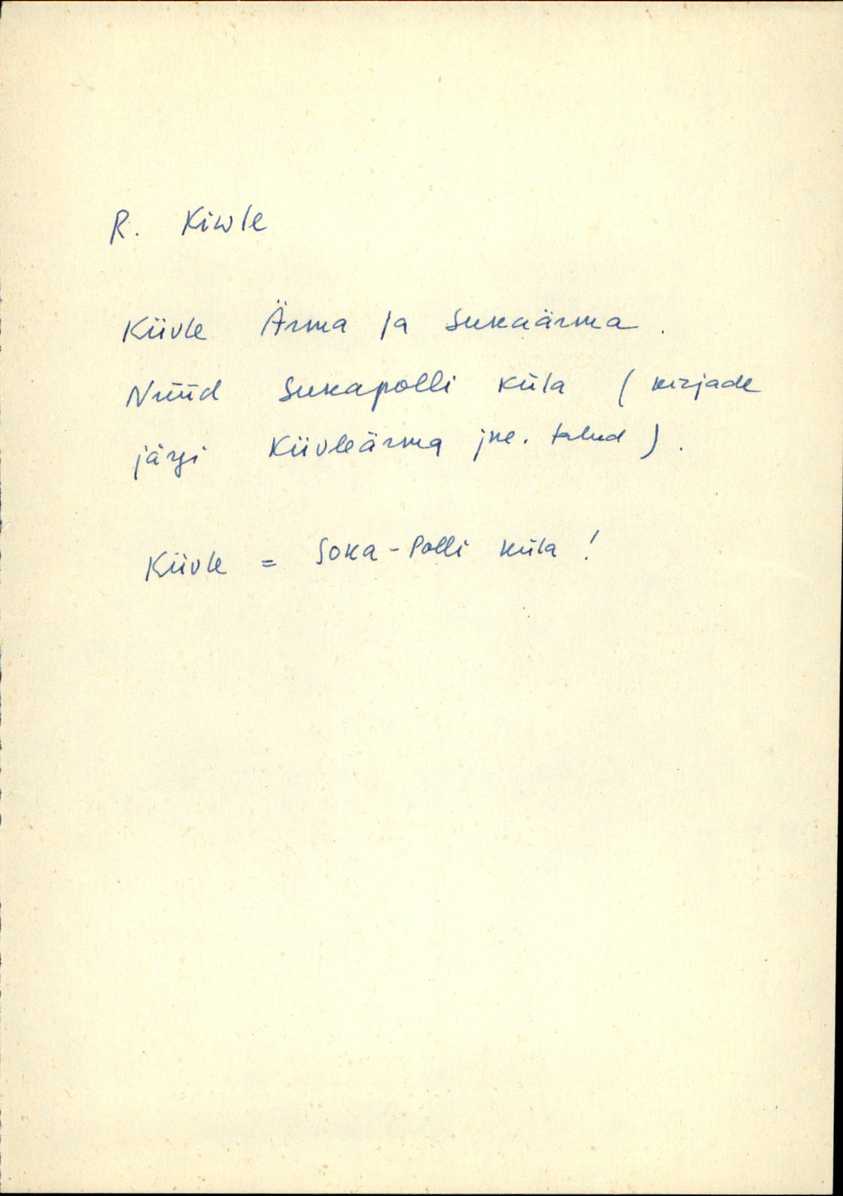 R. Kiwle
Kiivle Ärma ja Sukaärma.
Nüüd Sukapolli küla (kirjade
järgi Kiivleärma jne. talud).
Kiivle = Soka-Polli küla!